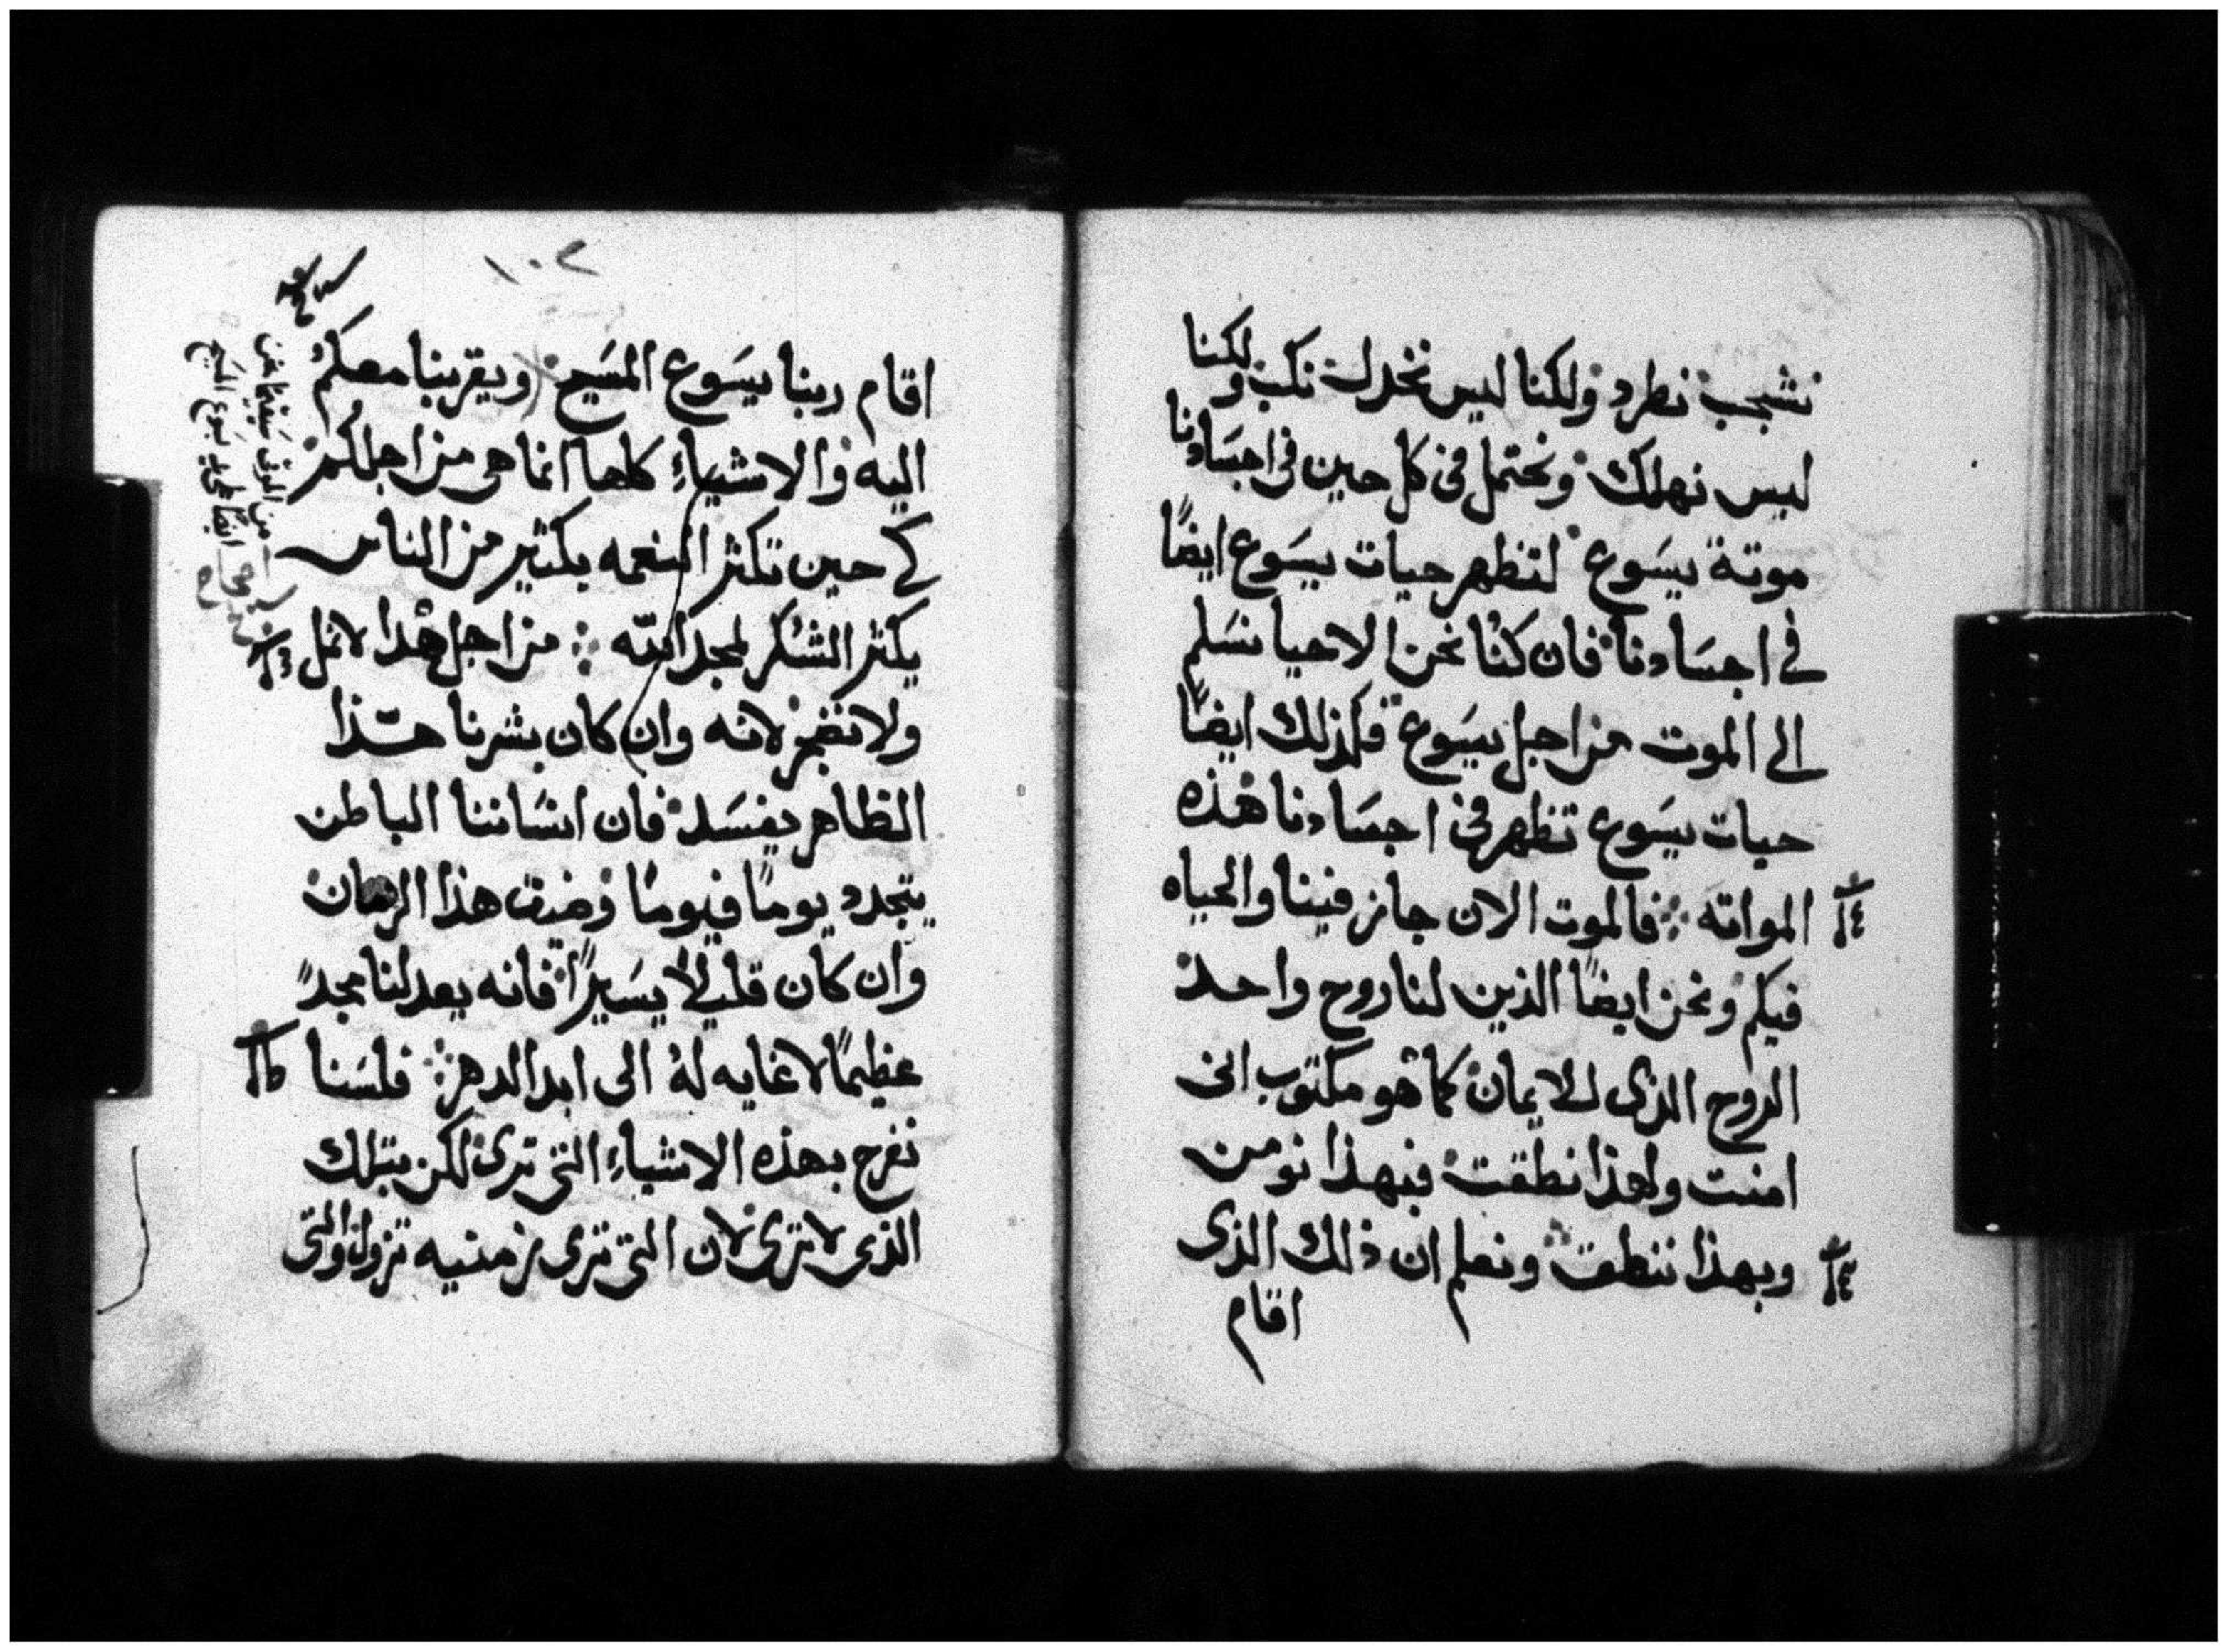 نشجب نطرد ولكنا ليس نخدل نكب ولكنا
ليس نهلك ونحتمل في كل حين في اجسادنا
موتة يسوع لتظهر حيات يسوع ايضًا
في اجسادنا فان كنا نحن الاحيا نسلم
الى الموت من اجل يسوع فكذلك ايضًا
حيات يسوع تظهر في اجسادنا هذه
المواته فالموت الان جايز فينا والحياه
فيكم ونحن ايضًا الذين لنا روح واحد
الروح الذى للايمان كما هو مكتوب انى
امنت ولهذا نطقت فبهذا نومن
وبهذا ننطق ونعلم ان ذلك الذى
اقام
١٠٢
اقام ربنا يسوع المسيح ويقربنا معكم
اليه والاشياء كلها انما هى من اجلكم
كى حين تكثر النعمه بكثير من الناس
يكثر الشكر لمجد الله من اجل هذا لا نمل
ولا نضجر لانه وان كان بشرنا هذا
الظاهر يفسد فان انساننا الباطن
يتجدد يومًا فيومًا وضيق هذا الزمان
وان كان قليلًا يسيرًا فانه يعد لنا مجدً
عظيمًا لا غايه له الى ابد الدهر فلسنا
نفرح بهذه الاشياء التى ترى لكن بتلك
الذى لا ترى لان التى ترى زمنيه تزول والتى
من الموت سيقيمنا نحن
ايضًا على يد يسوع المسيح